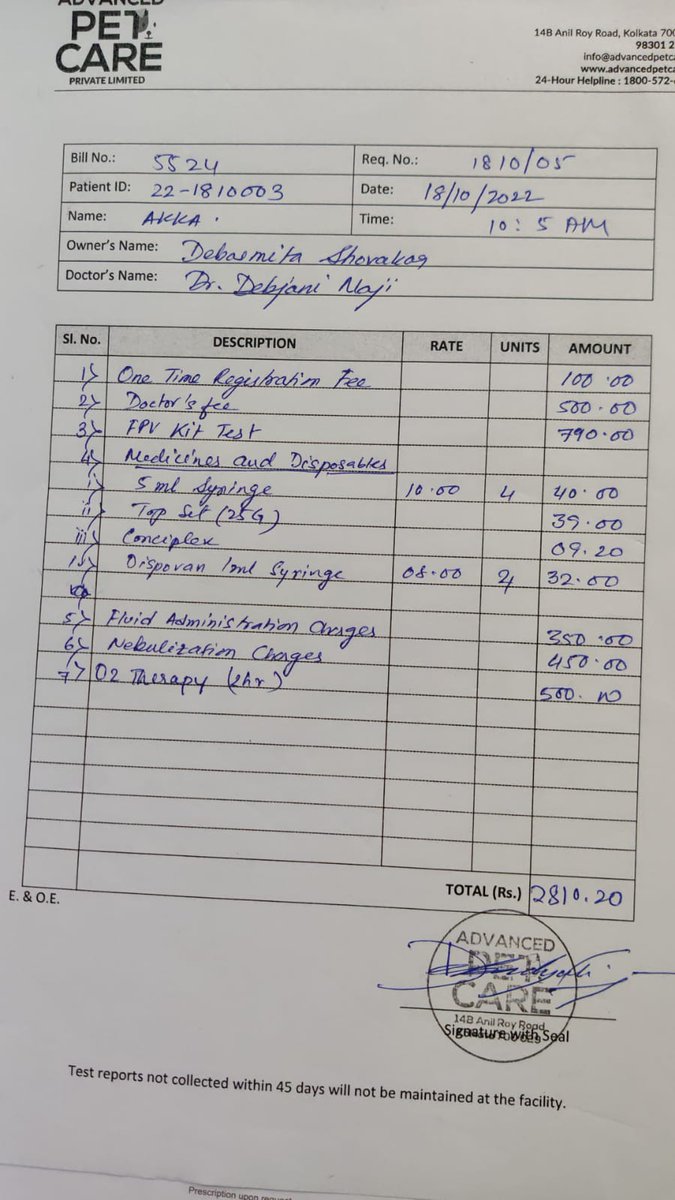 ADVANCED
PET
CARE
PRIVATE LIMITED
14B Anil Roy Road, Kolkata 700
98301 2
info@advancedpetca
www.advancedpetca
24-Hour Helpline : 1800-572-
Bill No.: 5524 Req. No.: 1810/05
Patient ID: 22-1810003 Date: 18/10/2022
Name: AKKA. Time: 10:5 AM
Owner's Name: Debasmita Shovakar
Doctor's Name: Dr. Debjani Maji
Sl. No. DESCRIPTION RATE UNITS AMOUNT
1) One Time Registration Fee 100.00
2) Doctor's fee 500.00
3) FPV Kit Test 790.00
4) Medicines and Disposables
i) 5 ml Syringe 10.00 4 40.00
ii) Top Set (25G) 39.00
iii) Conciplex 09.20
iv) Dispovan 1ml Syringe 08.00 4 32.00
5) Fluid Administration Charges 350.00
6) Nebulization Charges 450.00
7) O2 Therapy (2hr) 500.00
TOTAL (Rs.) 2810.20
E. & O.E.
ADVANCED
PET
CARE
14B Anil Roy Road
Signature with Seal
Test reports not collected within 45 days will not be maintained at the facility.
Prescription upon